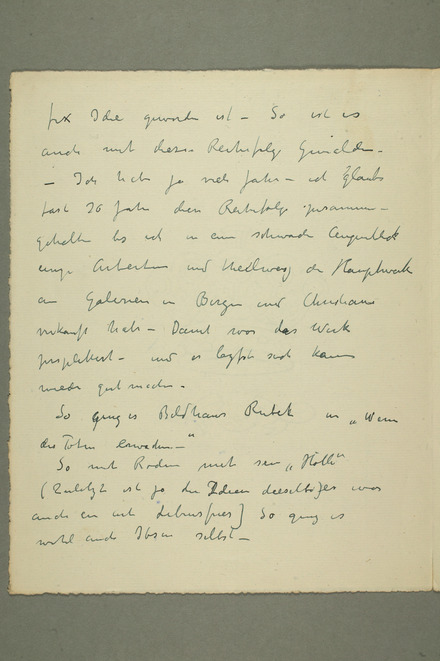 fix Idee geworden ist – So ist es
auch mit dieser Reihenfolge Gemälden –
– Ich habe ja viele Jahre – ich Glaube
fast 30 Jahre diese Reihenfolge zusammen –
gehalten bis ich in ein schwachen Augenblick
einige Arbeiten und theilweis die Hauptwerke
an Galerien in Bergen und Christiania
verkauft habe – Damit war das Werk
zersplittert – und es laszt sich kaum
wieder gut machen –
So ging es Bildhauer Rubek in „Wenn
die Toten erwachen –“
So mit Rodin mit sein „Hölle“
(Zuletzt ist ja die Ideen dieselbe) es war
auch ein art Lebensfries) So ging es
wohl auch Ibsen selbst –